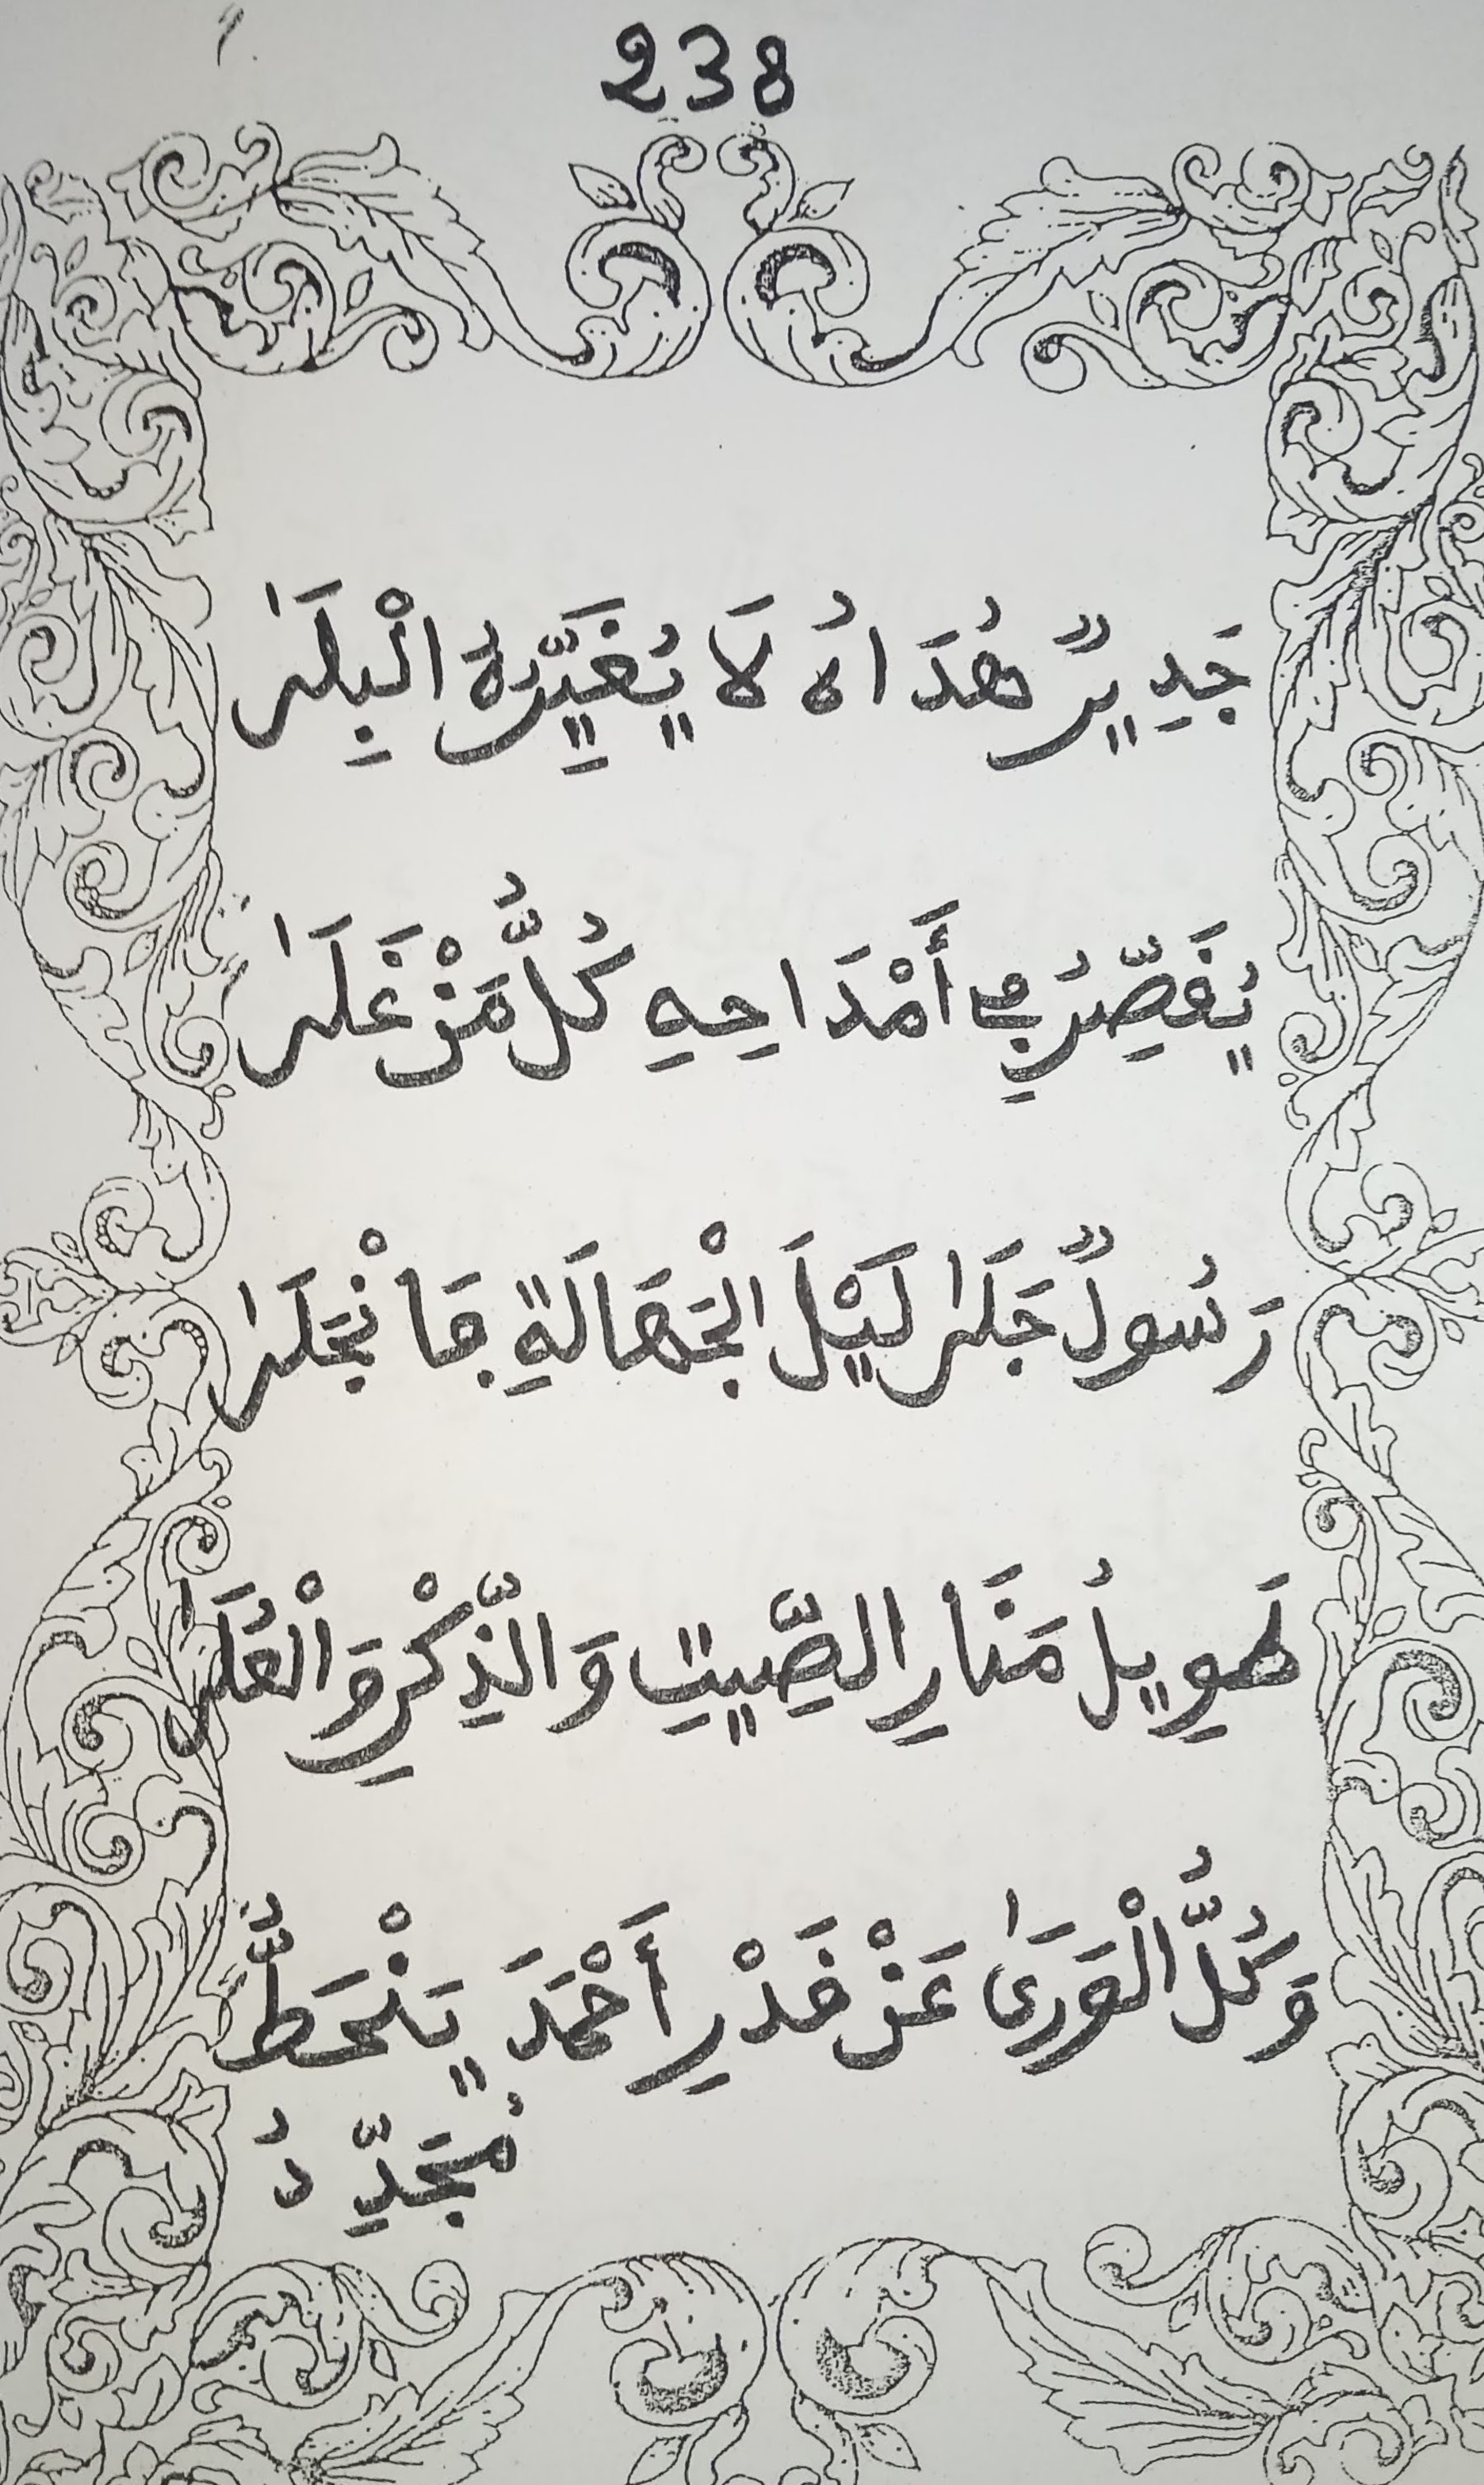 238
جَدِيرٌ هُدَاهُ لَا يُغَيِّرُهُ الْبِلَىٰ
يُقَصِّرُ فِي أَمْدَاحِهِ كُلُّ مَنْ غَلَىٰ
رَسُولٌ جَلَىٰ لَيْلَ الْجَهَالَةِ فَانْجَلَىٰ
طَوِيلُ مَنَارِ الصِّيتِ وَالذِّكْرِ وَالْعُلَىٰ
وَكُلُّ الْوَرَىٰ عَنْ قَدْرِ أَحْمَدَ يَنْحَطُّ
مُجَدِّدُ